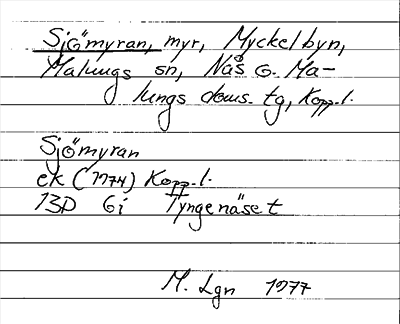 Sjömyran, myr, Myckelbyn,
Malungs sn, Nås o. Ma-
lungs doms. tg, Kopp. l.
Sjömyran
ek (1974) Kopp. l.
13D Gi Tyngenäset
M. Lgn 1977